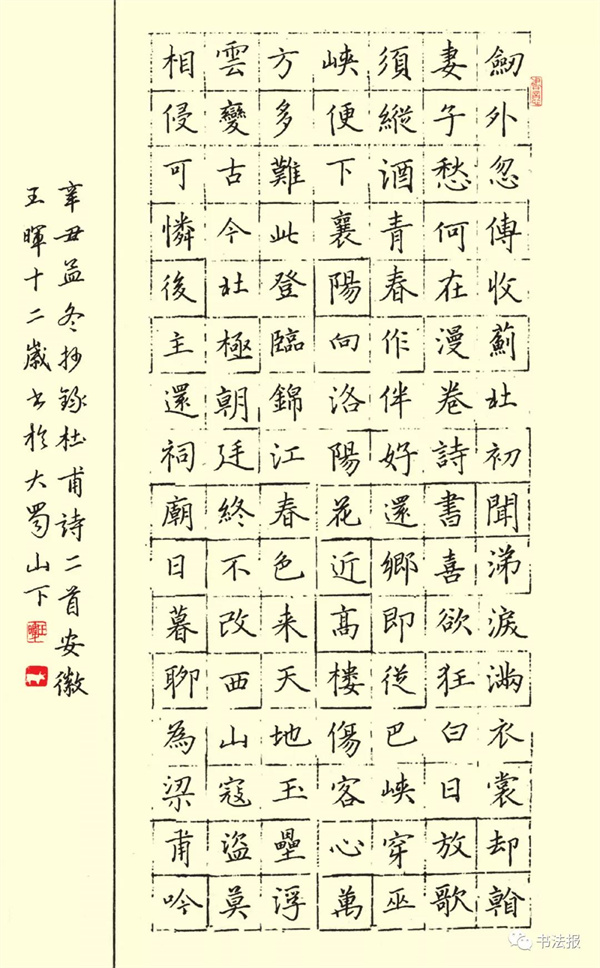 劒外忽傳收薊北初聞涕淚滿衣裳却看
妻子愁何在漫卷詩書喜欲狂白日放歌
須縱酒青春作伴好還鄉即從巴峽穿巫
峽便下襄陽向洛陽花近高樓傷客心萬
方多難此登臨錦江春色来天地玉壘浮
雲變古今北極朝廷終不改西山寇盜莫
相侵可憐後主還祠廟日暮聊為梁甫吟
辛丑孟冬抄錄杜甫詩二首安徽
王暉十二歲书於大蜀山下
书法报